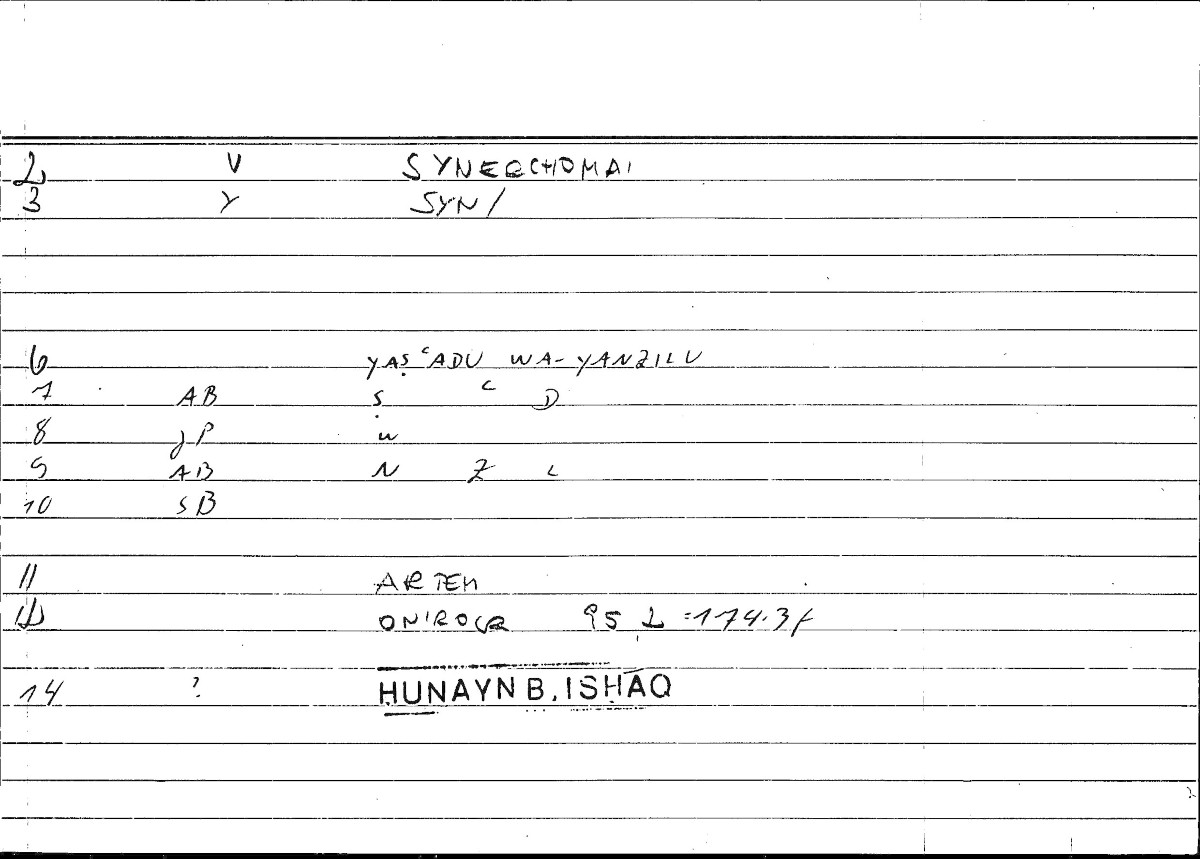 2 V SYNERCHOMAI
3 Y SYN/
6 YAṢʿADU WA-YANZILU
7 AB Ṣ ʿ D
8 JP W
9 AB N Z L
10 SB
11 ARTEM
12 ONIROCR 95 2 = 174.3 f
14 ? ḤUNAYN B. ISḤĀQ